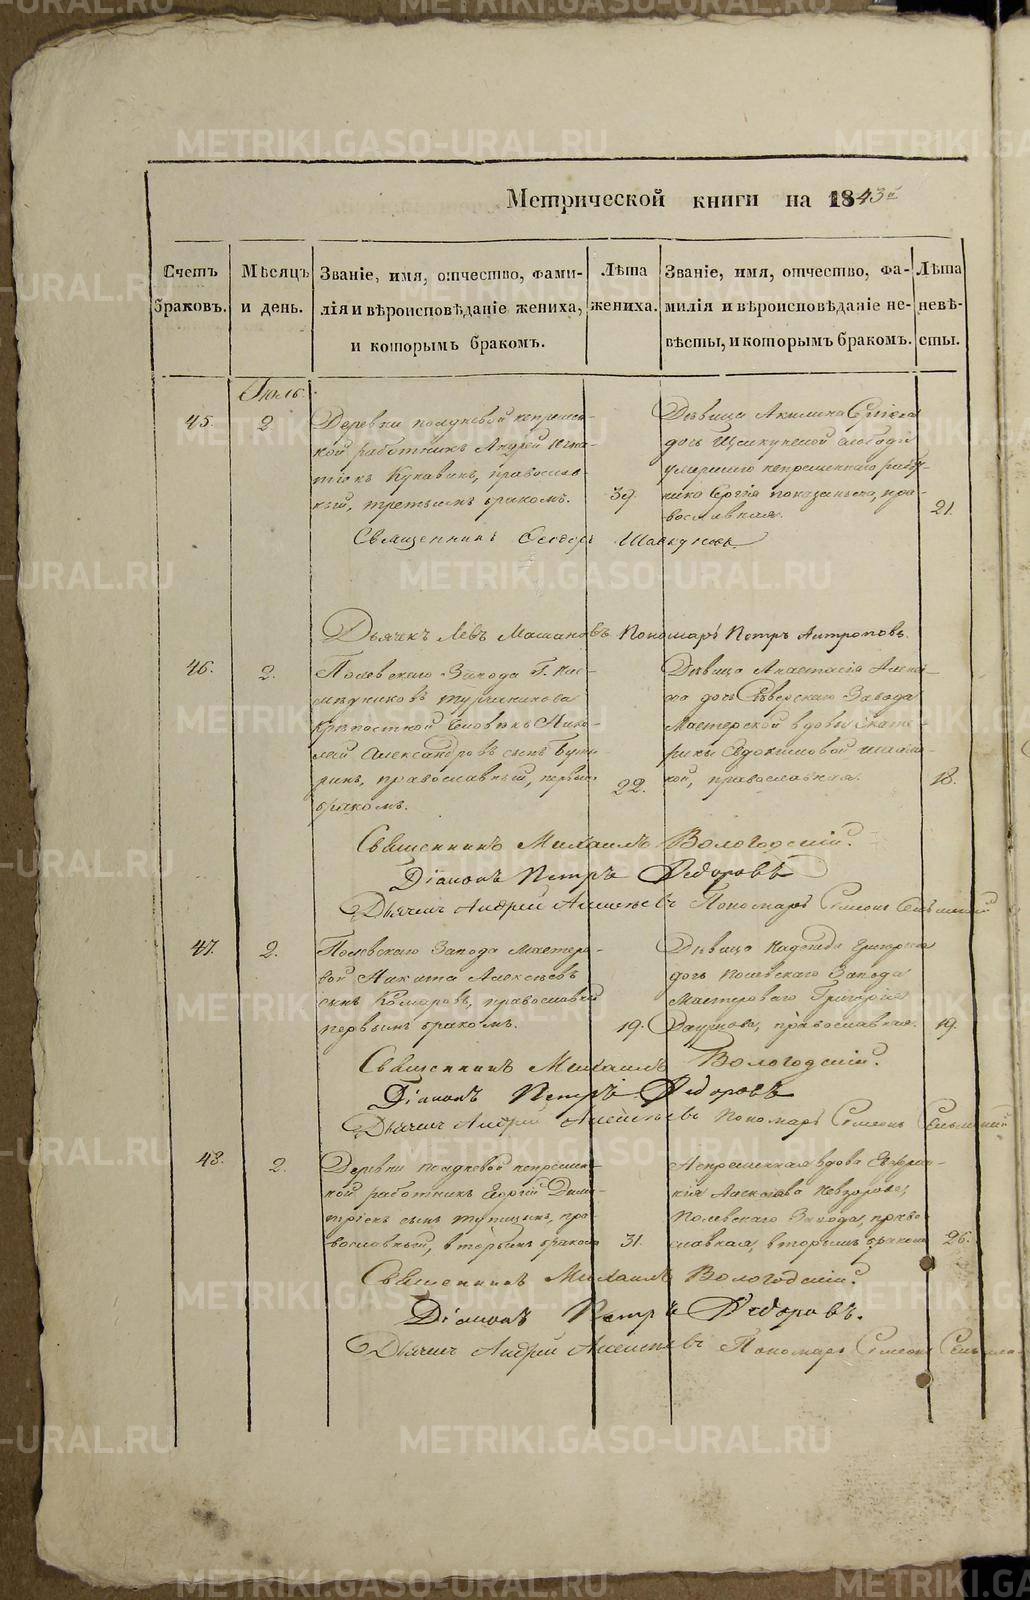 Метрической книги на 1843й
Счетъ браковъ.
Мѣсяцъ и день.
Званіе, имя, отчество, фами-
лія и вѣроисповѣданіе жениха,
и которымъ бракомъ.
Лѣта жениха.
Званіе, имя, отчество, фа-
милія и вѣроисповѣданіе не-
вѣсты, и которымъ бракомъ.
Лѣта невѣ-
сты.
Іюль.
45.
2
Деревни полдневой непремѣн-
ной работникъ Андрей Игна-
тьевъ православ-
ный, третьимъ бракомъ.
39.
Дѣвица Акилина Сергіева
дочь Щелкунской слободы
умершаго непремѣннаго работ-
ника Сергія пра-
вославная.
21.
Священникъ Ѳеодоръ
Дьячекъ Левъ Машановъ. Пономарь Петръ Антроповъ.
46.
2.
Полевскаго Завода Г. На-
слѣдниковъ Турчанинова
крѣпостной человѣкъ Нико-
лай Александровъ сынъ
православный, первымъ
бракомъ.
22.
Дѣвица Анастасія
дочь Сѣверскаго Завода
Мастерской вдовы Екате-
рины Евдокимовой
православная.
18.
Священникъ Михаилъ Вологодскій.
Діаконъ Петръ Ѳедоровъ
Дьячекъ Андрей Алексѣевъ Пономарь Симеонъ
47.
2.
Полевскаго Завода Мастеро-
вой Никита Алексѣевъ
сынъ Комаровъ, православный
первымъ бракомъ.
19.
Дѣвица Надежда Григорьева
дочь Полевскаго Завода
Мастероваго Григорія
православная.
19.
Священникъ Михаилъ Вологодскій.
Діаконъ Петръ Ѳедоровъ
Дьячекъ Андрей Алексѣевъ Пономарь Симеонъ
48.
2.
Деревни полдневой непремѣн-
ной работникъ Георгій Дими-
тріевъ сынъ пра-
вославный, вторымъ бракомъ
31.
Непремѣнная вдова
Невзорова,
Полевскаго Завода, право-
славная, вторымъ бракомъ
26.
Священникъ Михаилъ Вологодскій.
Діаконъ Петръ Ѳедоровъ.
Дьячекъ Андрей Алексѣевъ Пономарь Симеонъ
METRIKI.GASO-URAL.RU